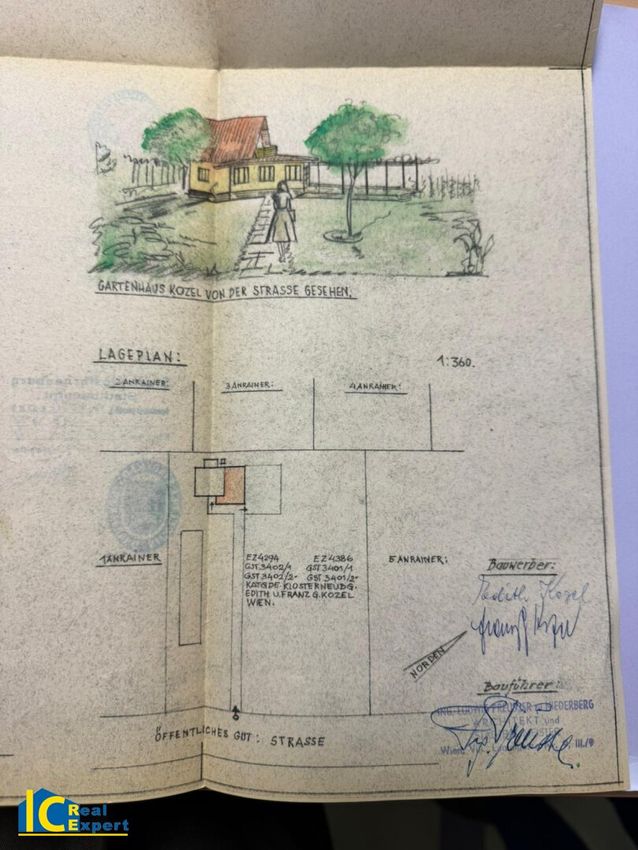 GARTENHAUS KOZEL VON DER STRASSE GESEHEN.
LAGEPLAN:
1:360.
2.ANRAINER:
3.ANRAINER:
4.ANRAINER:
1.ANRAINER
EZ4294 EZ4386
GST.3402/1 GST.3401/1
GST.3402/2- GST.3401/2-
KATGDE. KLOSTERNEUBG.
EDITH U. FRANZ G. KOZEL
WIEN.
5.ANRAINER:
Bauwerber:
Edith Kozel
NORDEN
Bauführer:
ARCHITEKT und
Wien
III/9
ÖFFENTLICHES GUT: STRASSE
IC Real
Expert